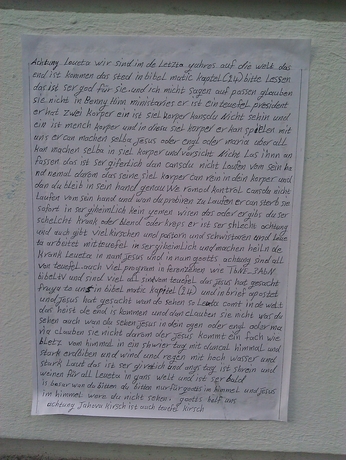 Achtung Leueta wir sind im de Letzta Yahres auf die welt das
end ist kommen das sted in bibel matic kaptel (24) bitte lessen
das ist ser god für sie. und ich micht sagen auf passen glauben
sie nicht in Benny Hinn ministaries er ist ein teufel president
er hat zwei Korper ein ist siel Korper kansdu Nicht sehin und
ein ist mench korper und in diem siel korper er kan spielen mit
uns er can machen selba Jesus oder engl oder maria aber all
kan machen selba in siel korper und vorsicht Niche Las ihnn an
fassen das ist ser giferlich dan cansdu nicht Laufen vom sein ha
nd nemal darum das seine siel korper can rein in dein korper und
dan du bleib in sein hand genau We romod kontrol cansdu nicht
Laufen von sein hand und wan du probiren zu Laufen er can sterb sie
sofort in ser giheimlich kein yemen wisen das oder er gibs du ser
schelcht krank oder blend oder kreps er ist ser shlecht achtung
und auch gibt viel kirschen und pastorn und schwistaren und Laue
ta arbeitet mit teufel in ser giheimlich und machen heiln de
Krank Leueta in nam Jesus und in nam gootts achtung sind all
von teufel. auch viel program in ferenzehen wie TBNE-3ABN
bibel tv und sind viel all sind vom teufel der Jesus hat gesucht
Fruya to uns in bibel matic kapitel (24) und in brief apostel
und Jesus hat gesucht wan du sehen so Leuta comt in de welt
das hoist de end is kommen und dan clauben sie nicht was du
sehen auch wan du sehen Jesus in dein ogen oder engl oder ma
ria clauben sie nicht darum der Jesus kommt ein fach wie
bletz von himmal in ein shwier tag mit duncal himmal und
stark erdbiben und wind und regen mit hoch wasser und
stark Laut das ist ser girvelich und angs tag ist shrein und
weinen für all Leueta in gans welt und ist ser bald
in himal wore du nicht sehen gootts helf uns
achtung Jahova kirsch ist auch teufel kirsch